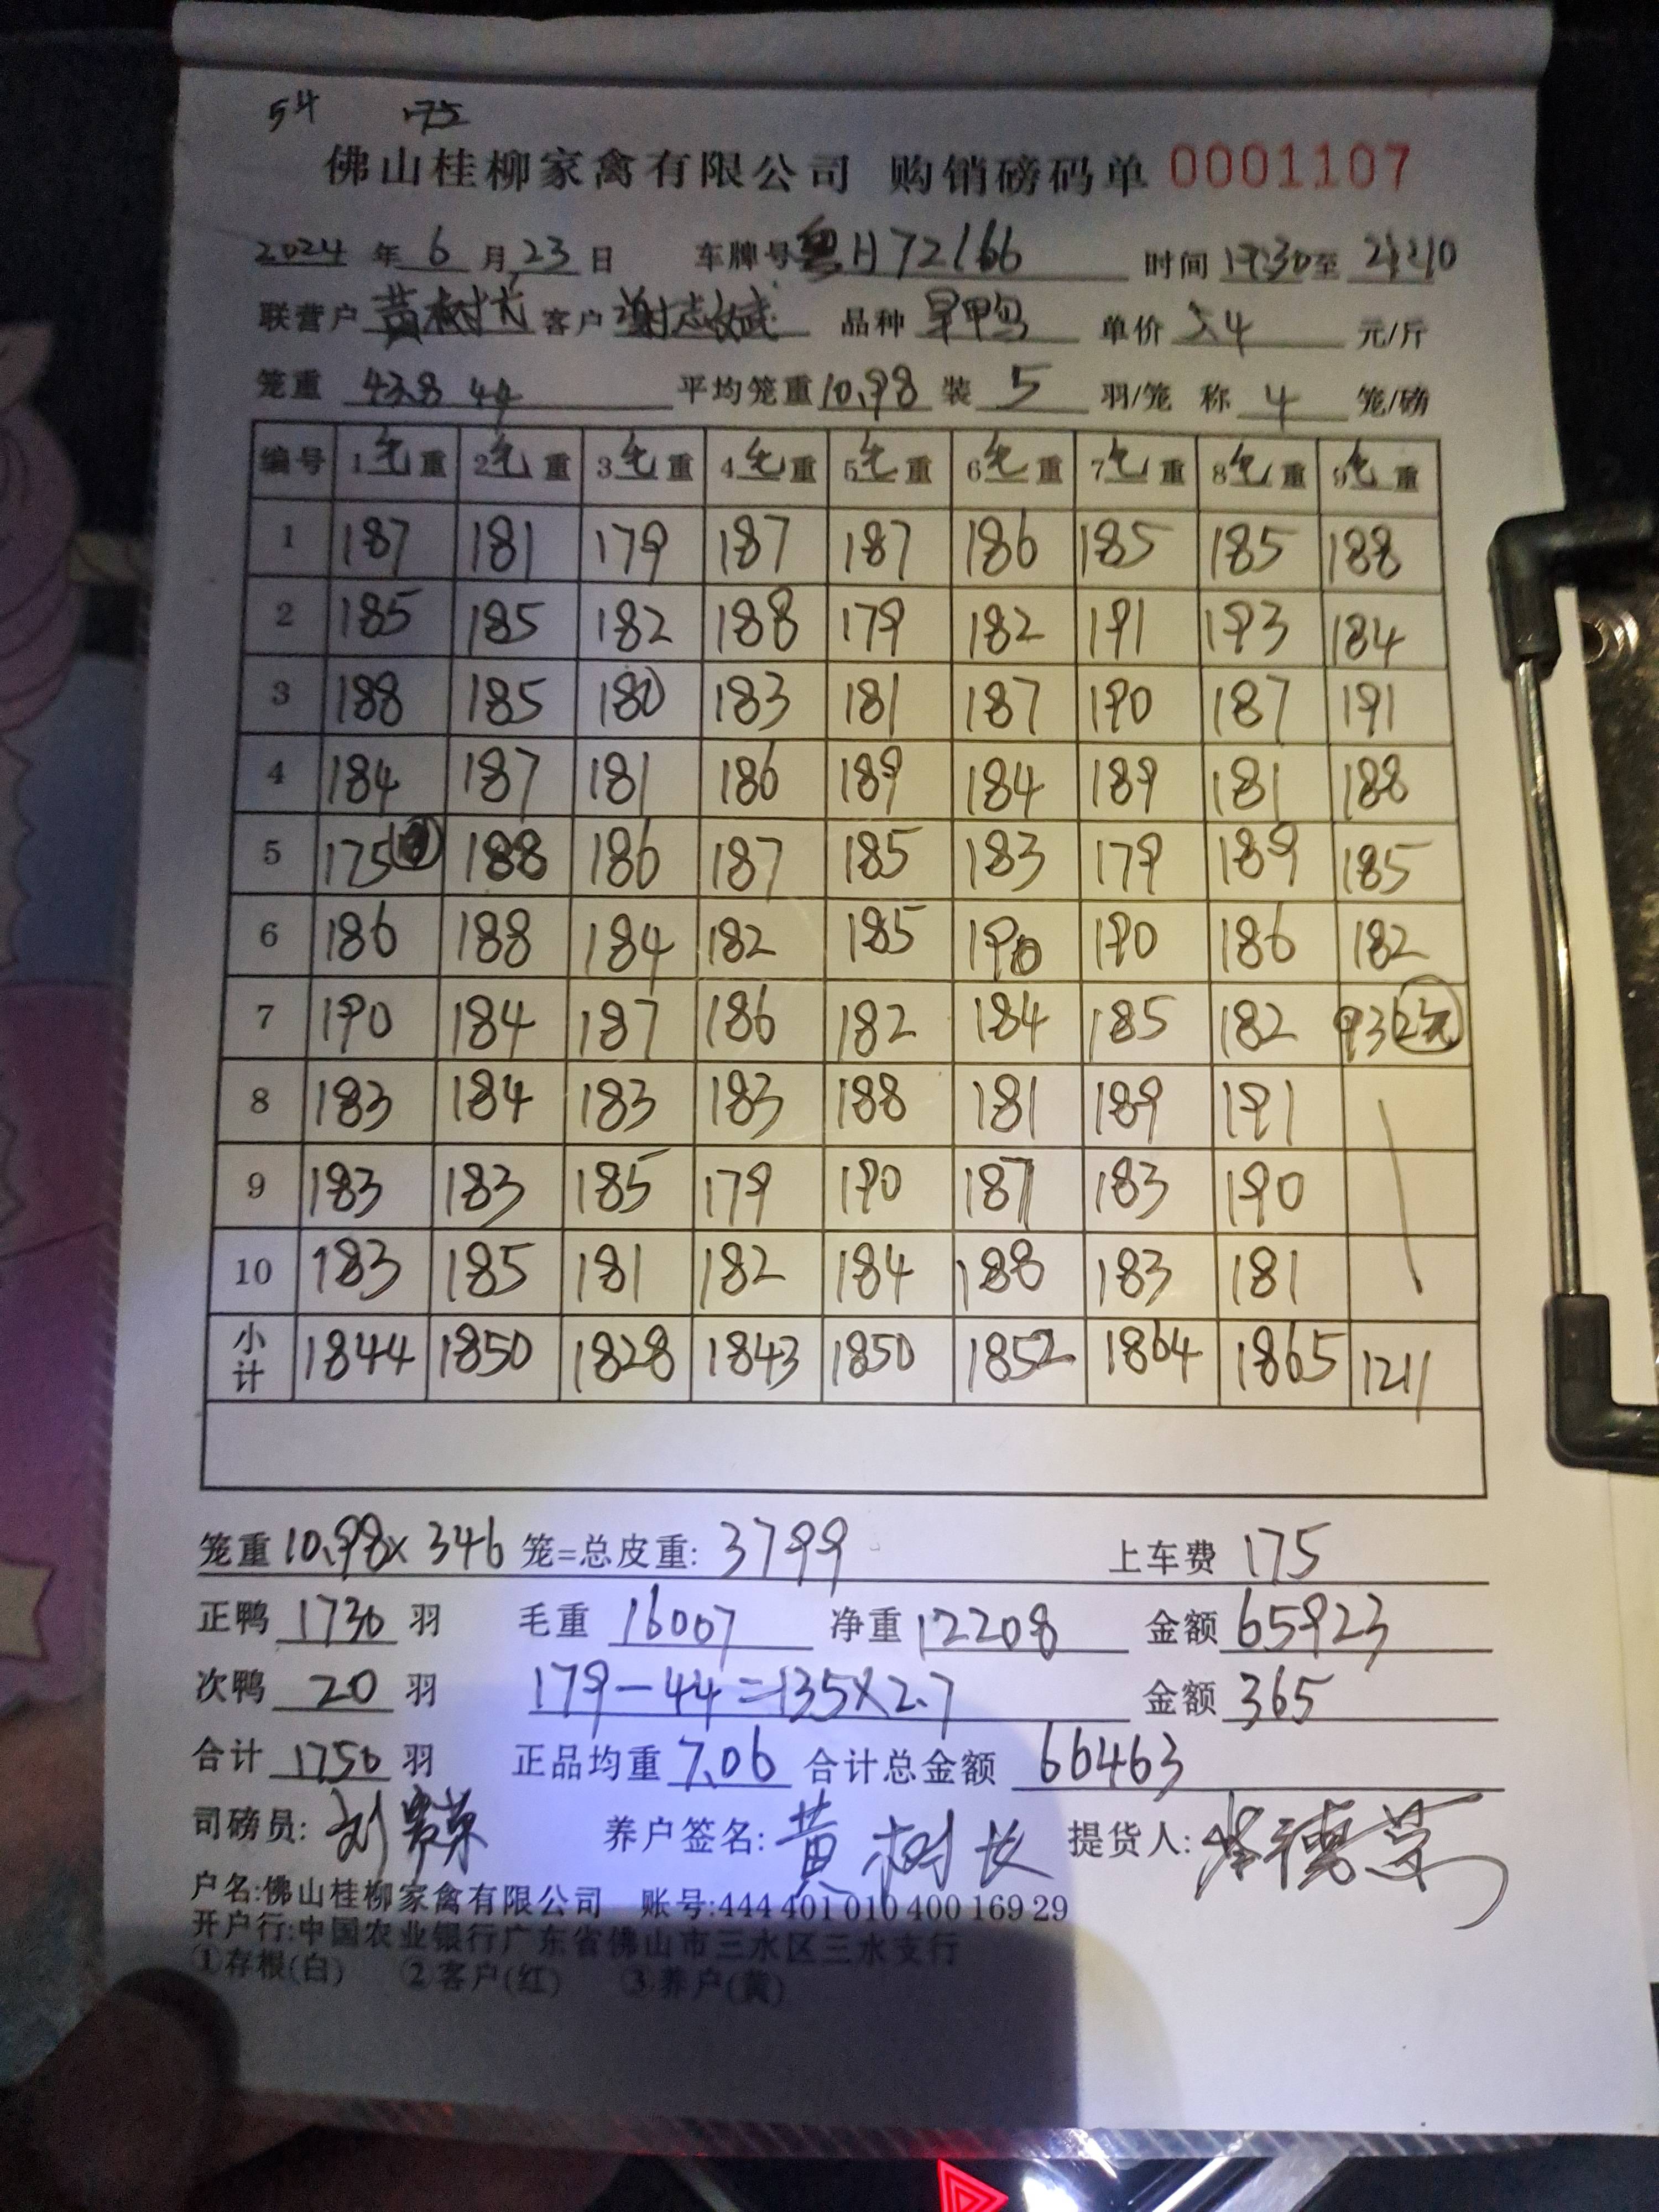 54 175
佛山桂柳家禽有限公司 购销磅码单 0001107
2024 年 6 月 23 日 车牌号 粤H72166 时间 19:30 至 21:10
联营户 黄树 客户 谢志斌 品种 旱鸭 单价 5.4 元/斤
笼重 43.8 44 平均笼重 10.98 装 5 羽/笼 称 4 笼/磅
编号 1毛重 2毛重 3毛重 4毛重 5毛重 6毛重 7毛重 8毛重 9毛重
1 187 181 179 187 187 186 185 185 188
2 185 185 182 188 179 182 191 193 184
3 188 185 180 183 181 187 190 187 191
4 184 187 181 186 189 184 189 181 188
5 175 188 186 187 185 183 179 189 185
6 186 188 184 182 185 190 190 186 182
7 190 184 187 186 182 184 185 182 93
8 183 184 183 183 188 181 189 191
9 183 183 185 179 190 187 183 190
10 183 185 181 182 184 188 183 181
小计 1844 1850 1828 1843 1850 1852 1864 1865 1211
笼重 10.98 x 346 笼=总皮重: 3799 上车费 175
正鸭 1730 羽 毛重 16007 净重 12208 金额 65923
次鸭 20 羽 179-44=135x2.7 金额 365
合计 1750 羽 正品均重 7.06 合计总金额 66463
司磅员: 刘 养户签名: 黄树 提货人:
户名:佛山桂柳家禽有限公司 账号:444 401 010 400 169 29
开户行:中国农业银行广东省佛山市三水区三水支行
①存根(白) ②客户(红) ③养户(黄)